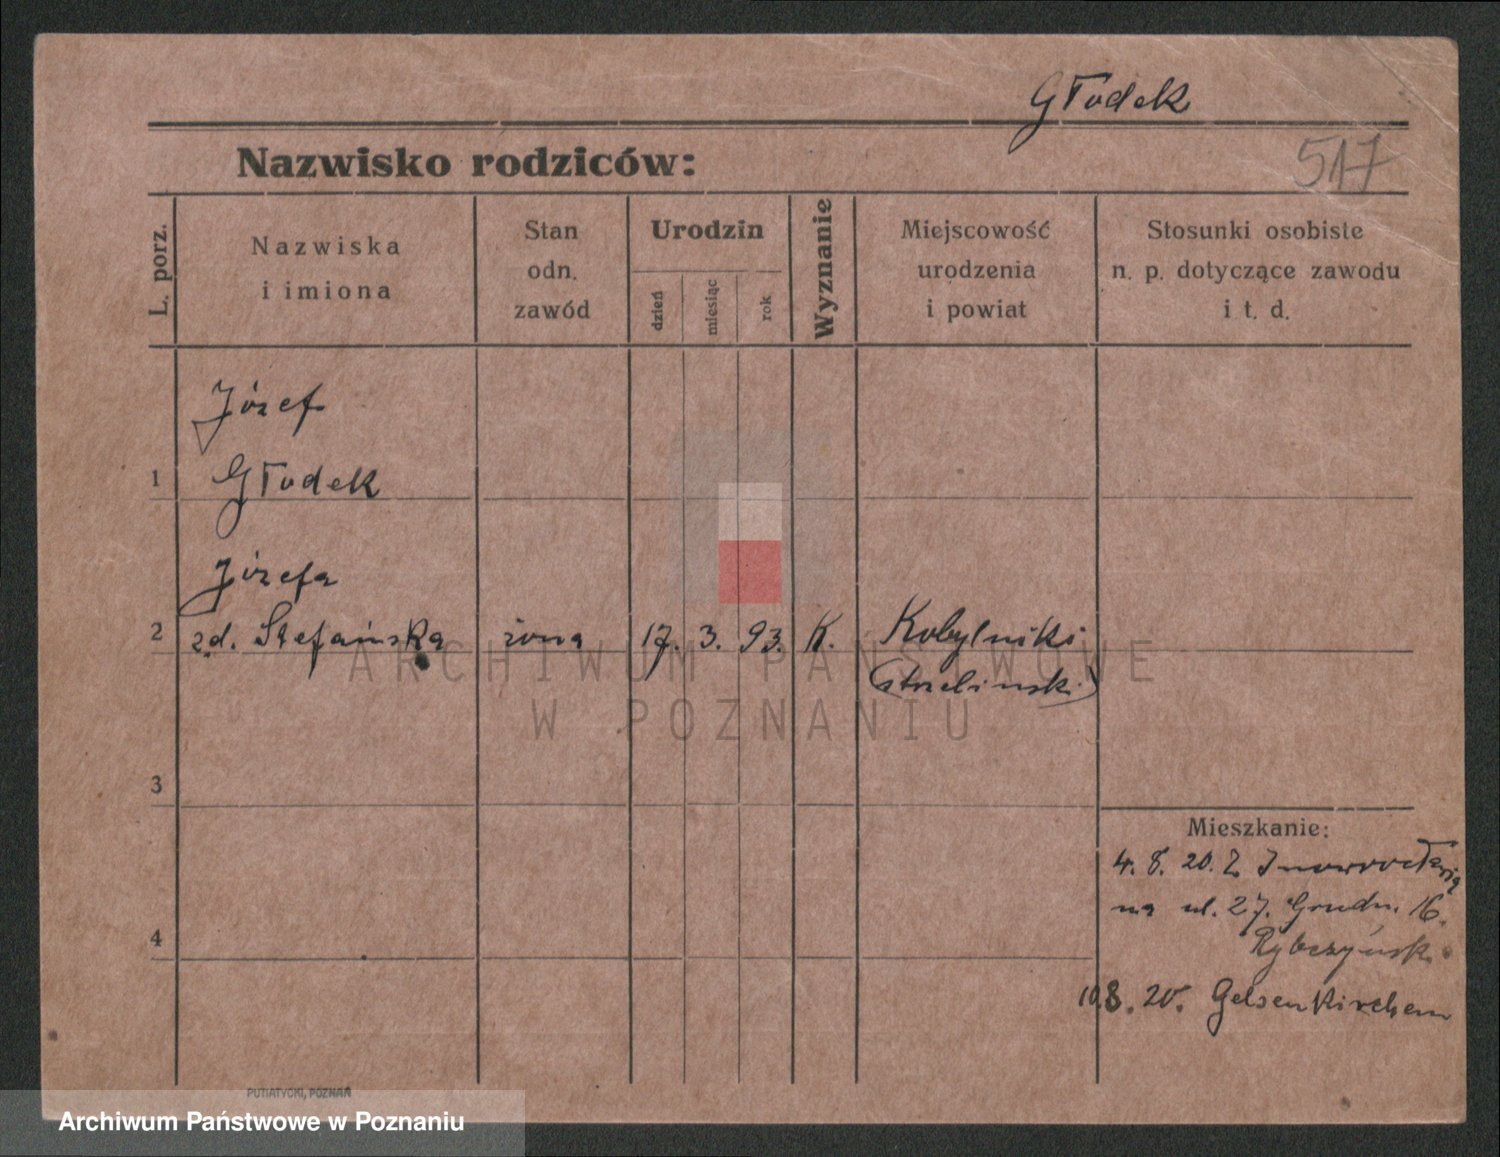 Głodek
517
Nazwisko rodziców:
L. porz.
Nazwiska
i imiona
Stan
odn.
zawód
Urodzin
dzień
miesiąc
rok
Wyznanie
Miejscowość
urodzenia
i powiat
Stosunki osobiste
n. p. dotyczące zawodu
i t. d.
Józef
1 Głodek
Józefa
2 zd. Stefańska żona 17. 3. 93. K. Kobylniki
(strzeliński)
ARCHIWUM PAŃSTWOWE
W POZNANIU
3
Mieszkanie:
4. 8. 20. Z Inowrocławia
na ul. 27. Grudn. 16.
4
Rybczyński
10.8. 20. Gelsenkirchen
PUTIATYCKI, POZNAŃ
Archiwum Państwowe w Poznaniu